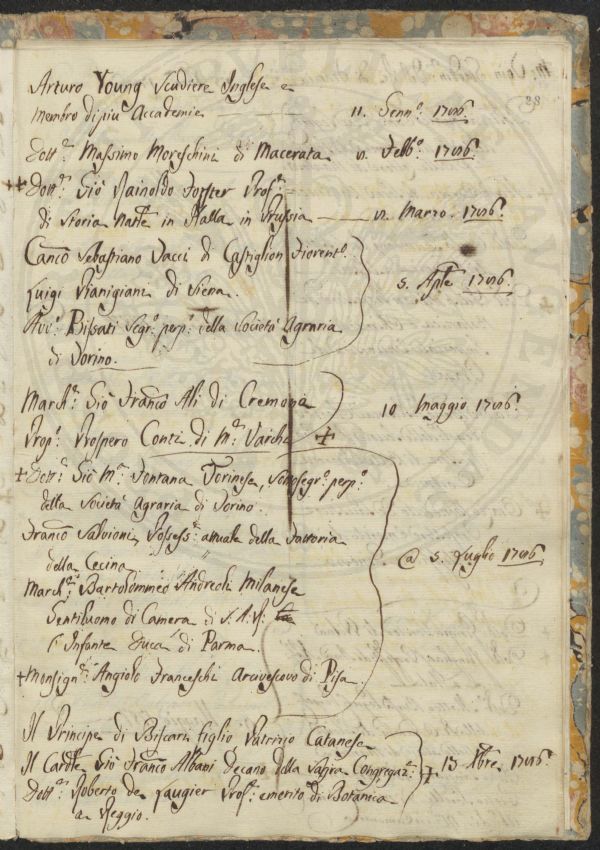 38
Arturo Young Scudiere Inglese e
membro di più Accademie 11. Genn:º 1786.
Dott:r Massimo Moreschini di Macerata Febb:º 1786.
++ Dott:r Giõ Rainoldo Forster Prof:e
di Storia Natle in Halla in Prussia Marzo. 1786.
Cancõ Sebastiano Pacci di Castiglion Fiorentº.
Luigi Pianigiani di Siena. 5. Aple 1786.
Avv:º Bissati Segr:º perp:º della Società Agraria
di Torino.
March:e Giõ Francõ Ali di Cremona 10 Maggio 1786.
Prop:º Prospero Conti di M:e Varchi +
+ Dott:r Giõ M:a Fontana Torinese, Sottosegr:º perp:º
della Società Agraria di Torino.
Francõ Salvioni, Possess:e attuale della Fattoria
della Cecina @ 5. Luglio 1786
March:e Bartolommeo Andreoli Milanese
Gentiluomo di Camera di S. A. R:
l'Infante Duca di Parma.
+ Monsign:r Angiolo Franceschi Arcivescovo di Pisa.
Il Principe di Biscari figlio Patrizio Catanese
Il Cardle Giõ Francõ Albani Decano della Sagra Congregaz:e + 13 Xbre. 1786.
Dott:r Roberto de Laugier Prof:e emerito di Botanica
a Reggio.